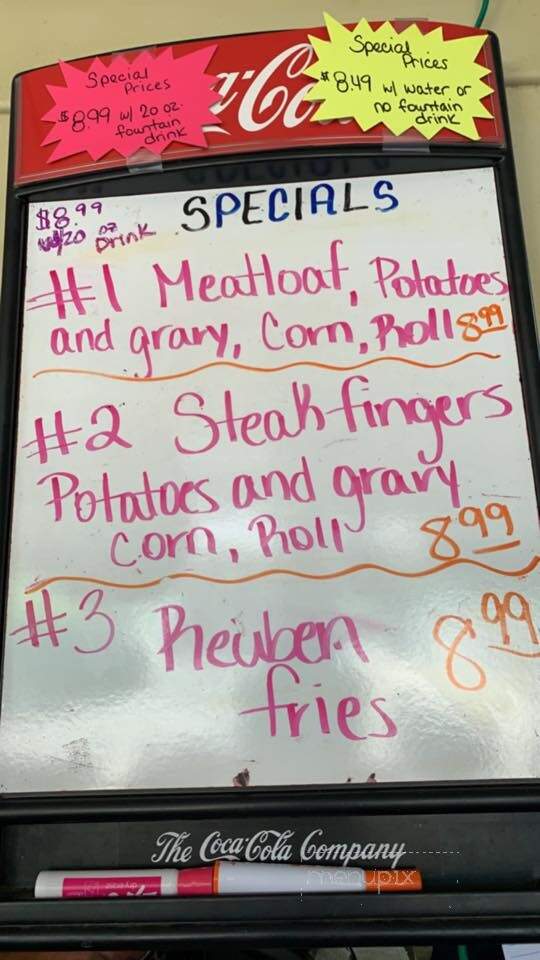 Special
Prices
$8.99 w/ 20 oz.
fountain
drink
Special
Prices
$8.49 w/ water or
no fountain
drink
a-Co
$8.99
w/20 oz
Drink
SPECIALS
#1 Meatloaf, Potatoes
and gravy, Corn, Roll 8.99
#2 Steak fingers
Potatoes and gravy
Corn, Roll 8.99
#3 Reuben 8.99
fries
The Coca-Cola Company
menupix